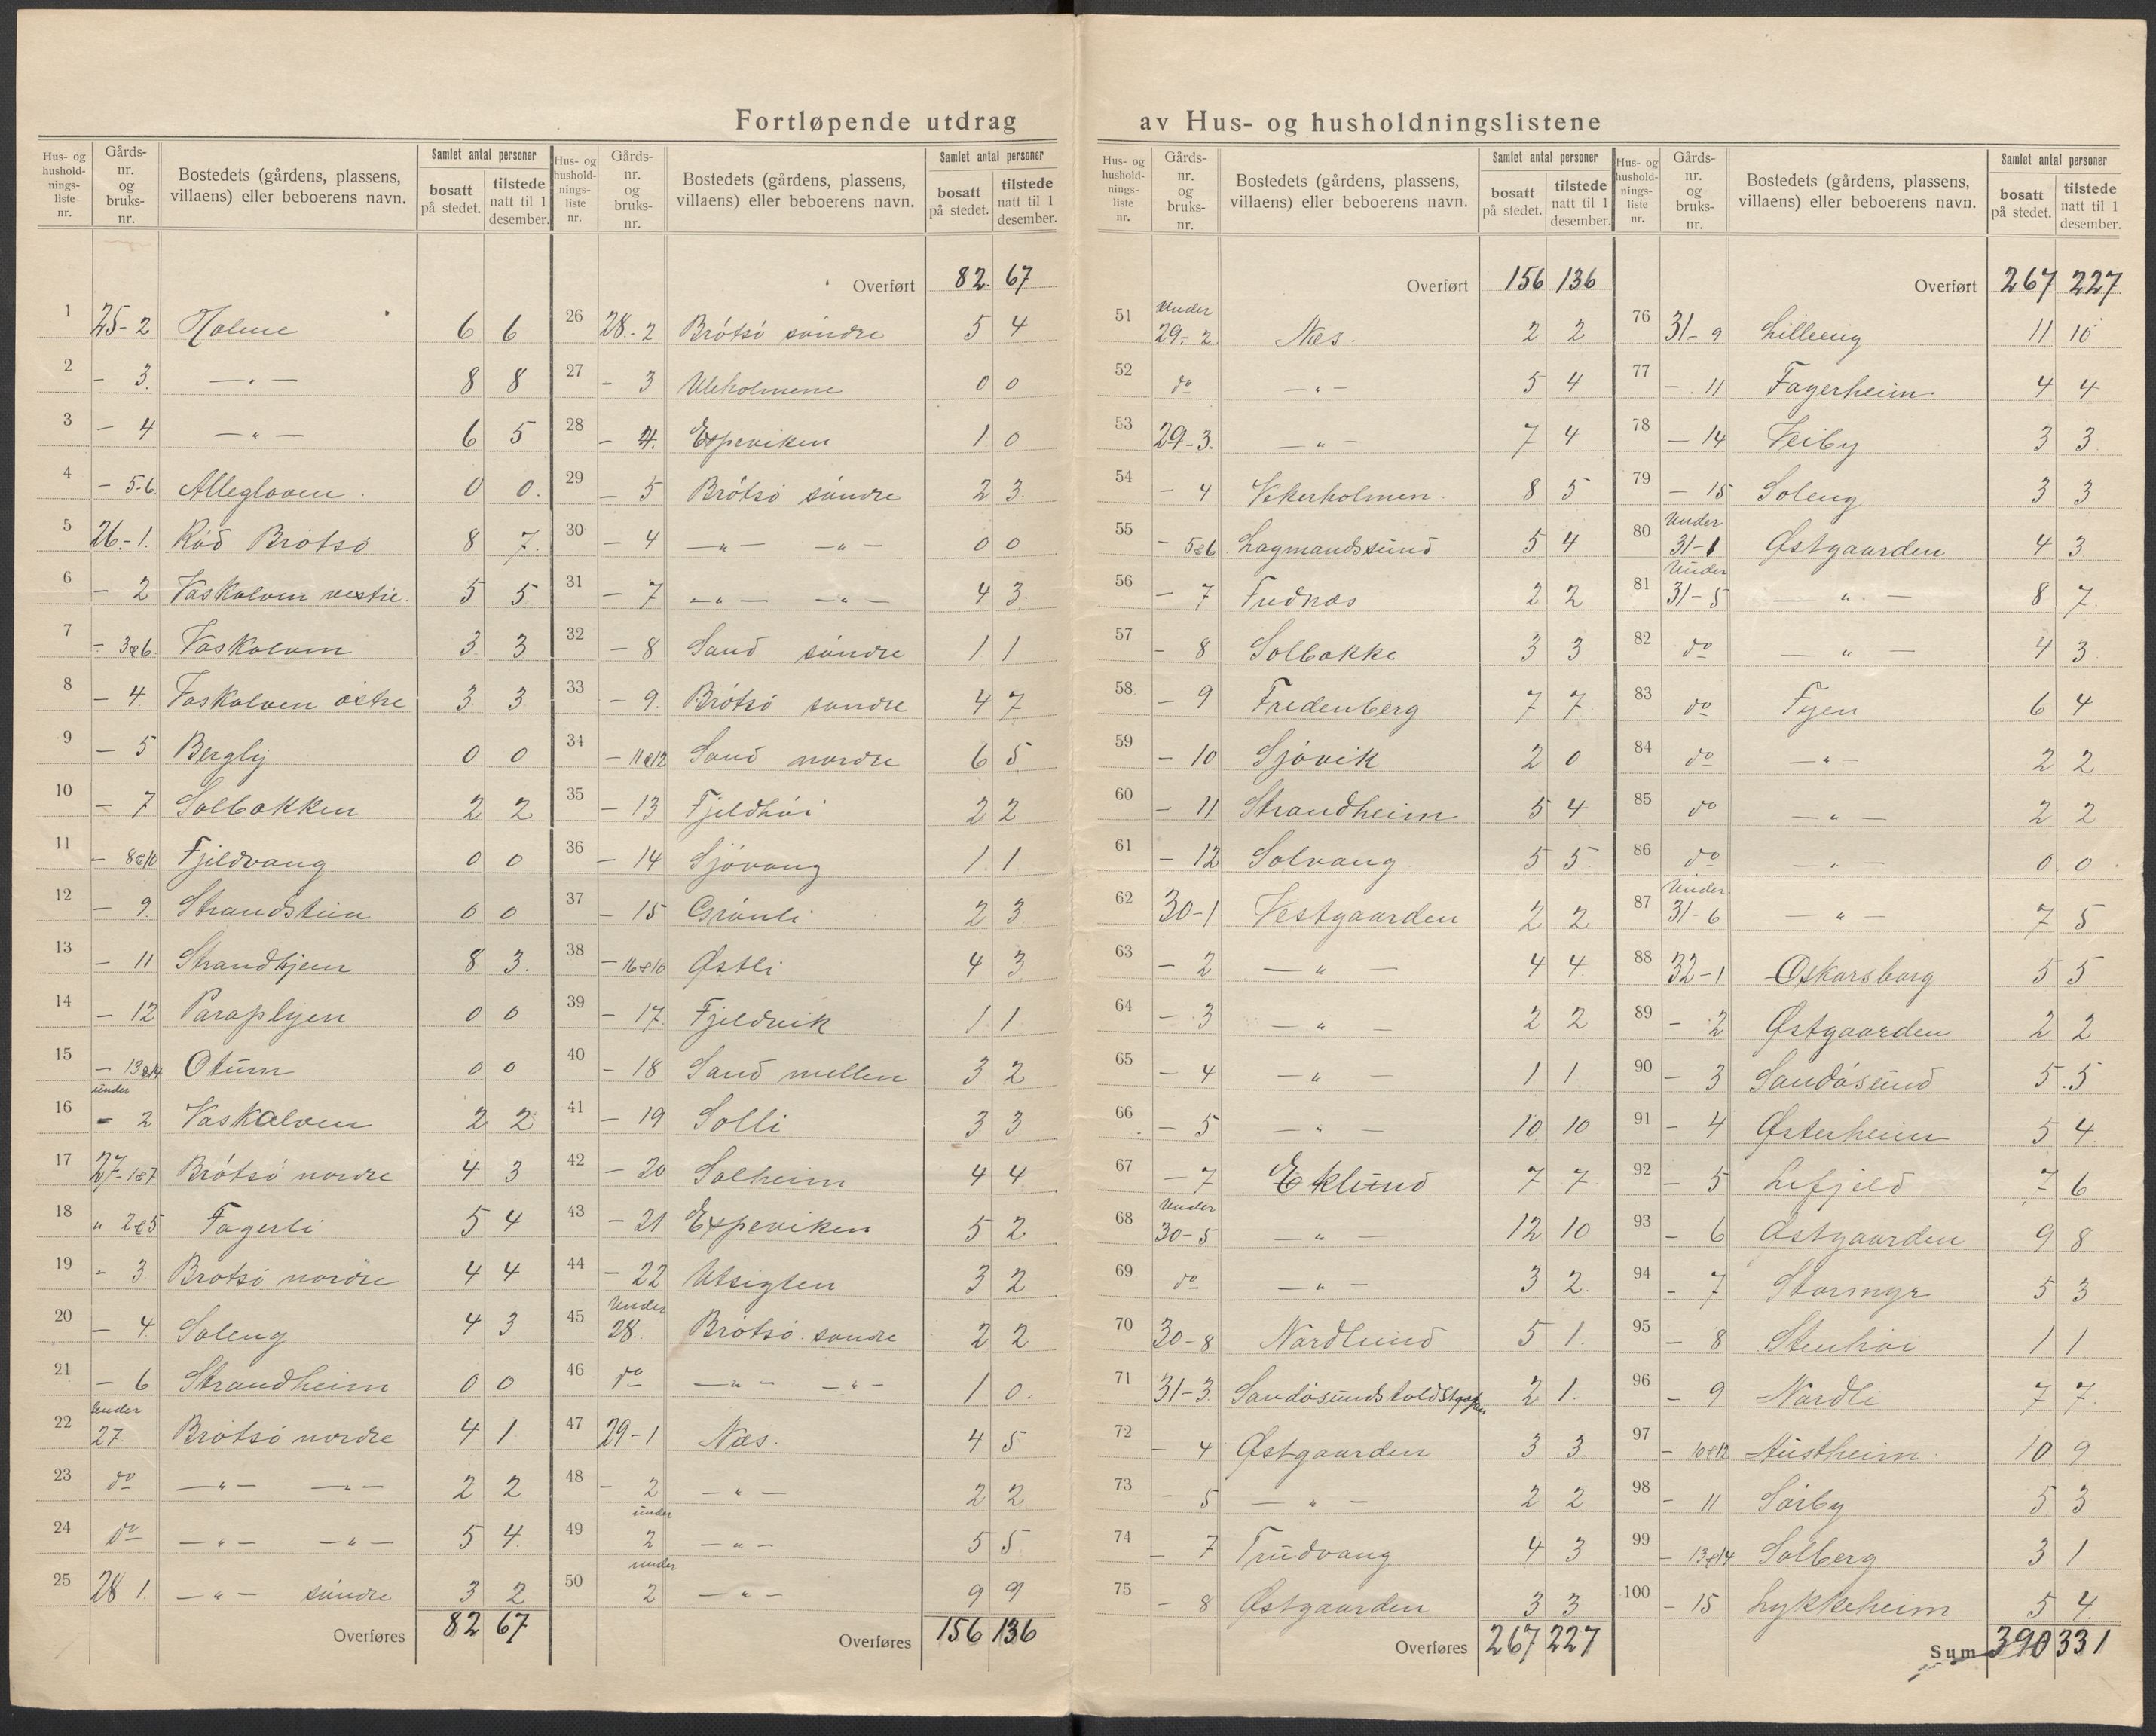 Fortløpende utdrag av Hus- og husholdningslistene
Hus- og hushold- nings- liste nr. | Gårds- nr. og bruks- nr. | Bostedets (gårdens, plassens, villaens) eller beboerens navn. | Samlet antal personer | bosatt på stedet. | tilstede natt til 1 desember.
1 25-2 Holme 6 6
2 - 3. — " — 8 8
3 - 4 — " — 6 5
4 - 5-6. 0 0.
5 26-1. Rød Brøtsø 8 7.
6 - 2 Vaskalven vestre. 5 5
7 - 3&6. Vaskalven 3 3
8 - 4. Vaskalven østre 3 3
9 - 5 Bergly 0 0
10 - 7 Solbakken 2 2
11 - 8&10 Fjeldvang 0 0
12 - 9. 0 0
13 - 11 Strandhjem 8 3.
14 - 12 Paraplyen 0 0
15 - 13&14 Otium 0 0
16 under - 2 Vaskalven 2 2
17 27-1&7 Brøtsø nordre 4 3
18 " 2&5 Fagerli 5 4
19 - 3. Brøtsø nordre 4 4
20 - 4 Soleng 4 3
21 - 6 Strandheim 0 0
22 Under 27. Brøtsø nordre 4 1
23 do — " — — " — 2 2
24 do — " — — " — 5 4.
25 28 1. — " — søndre 3 2
Overføres 82 67
Hus- og hushold- nings- liste nr. | Gårds- nr. og bruks- nr. | Bostedets (gårdens, plassens, villaens) eller beboerens navn. | Samlet antal personer | bosatt på stedet. | tilstede natt til 1 desember.
Overført 82. 67
26 28.-2 Brøtsø søndre 5 4
27 - 3 Uleholmene 0 0
28 - 4. Espeviken 1 0
29 - 5 Brøtsø søndre 2 3.
30 - 4 — " — — " — 0 0
31 - 7 — " — — " — 4 3.
32 - 8 Sand søndre 1 1
33 - 9. Brøtsø søndre 4 7
34 - 11&12 Sand nordre 6 5
35 - 13 Fjeldhøi 2 2
36 - 14 Sjøvang 1 1
37 - 15 Grønli 2 3
38 - 16&10 Østli 4 3
39 - 17. Fjeldvik 1 1
40 - 18 Sand mellem 3 2
41 - 19 Solli 3 3
42 - 20 Solheim 4 4
43 - 21 Espeviken 5 2
44 - 22 Utsigten 3 2
45 Under 28. Brøtsø søndre 2 2
46 do — " — — " — 1 0.
47 29-1 Næs. 4 5
48 - 2 — " — 2 2
49 under 2 — " — 5 5
50 under 2 — " — 9 9
Overføres 156 136
Hus- og hushold- nings- liste nr. | Gårds- nr. og bruks- nr. | Bostedets (gårdens, plassens, villaens) eller beboerens navn. | Samlet antal personer | bosatt på stedet. | tilstede natt til 1 desember.
Overført 156 136
51 Under 29-2 Næs. 2 2
52 do — " — 5 4
53 29-3. — " — 7 4
54 - 4 Vekerholmen. 8 5
55 - 5&6. Lagmandssund 5 4
56 - 7 Fudnæs 2 2
57 - 8 Solbakke 3 3
58. - 9 Fredenberg 7 7
59 - 10 Sjøvik 2 0
60 - 11 Strandheim 5 4
61 - 12 Solvang 5 5.
62 30-1 Vestgaarden 2 2
63 - 2 — " — 4 4
64 - 3 — " — 2 2
65 - 4 — " — 1 1
66 - 5 — " — 10 10
67 - 7 Eklund 7 7
68 Under 30-5 — " — 12 10
69 do — " — 3 2.
70 30-8 Nordlund 5 1.
71 31-3. 2 1.
72 - 4 Østgaarden 3 3
73 - 5 — " — 2 2
74 - 7 Trudvang 4 3
75 - 8 Østgaarden 3 3
Overføres 267 227
Hus- og hushold- nings- liste nr. | Gårds- nr. og bruks- nr. | Bostedets (gårdens, plassens, villaens) eller beboerens navn. | Samlet antal personer | bosatt på stedet. | tilstede natt til 1 desember.
Overført 267 227
76 31-9 Lilleeng 11 10
77 - 11 Fagerheim 4 4
78 - 14 Veiby 3 3
79 - 15 Soleng 3 3
80 Under 31-1 Østgaarden 4 3
81 Under 31-5 — " — 8 7
82 do — " — 4 3
83 do Fyen 6 4
84 do — " — 2 2
85 do — " — 2 2
86 do — " — 0 0
87 Under 31-6 — " — 7 5
88 32-1 Oskarsborg 5 5
89 - 2 Østgaarden 2 2
90 - 3 Sandøsund 5 5
91 - 4 Østerheim 5 4.
92 - 5 Lefjeld 7 6
93 - 6 Østgaarden 9 8
94 - 7 Stormyr 5 3
95 - 8 Stenhøi 1 1
96 - 9 Nordli 7 7
97 - 10&12 Austheim 10 9
98 - 11 Sørby 5 3
99 - 13&14 Solberg 3 1
100 - 15 Lykkeheim 5 4.
Sum 390 331